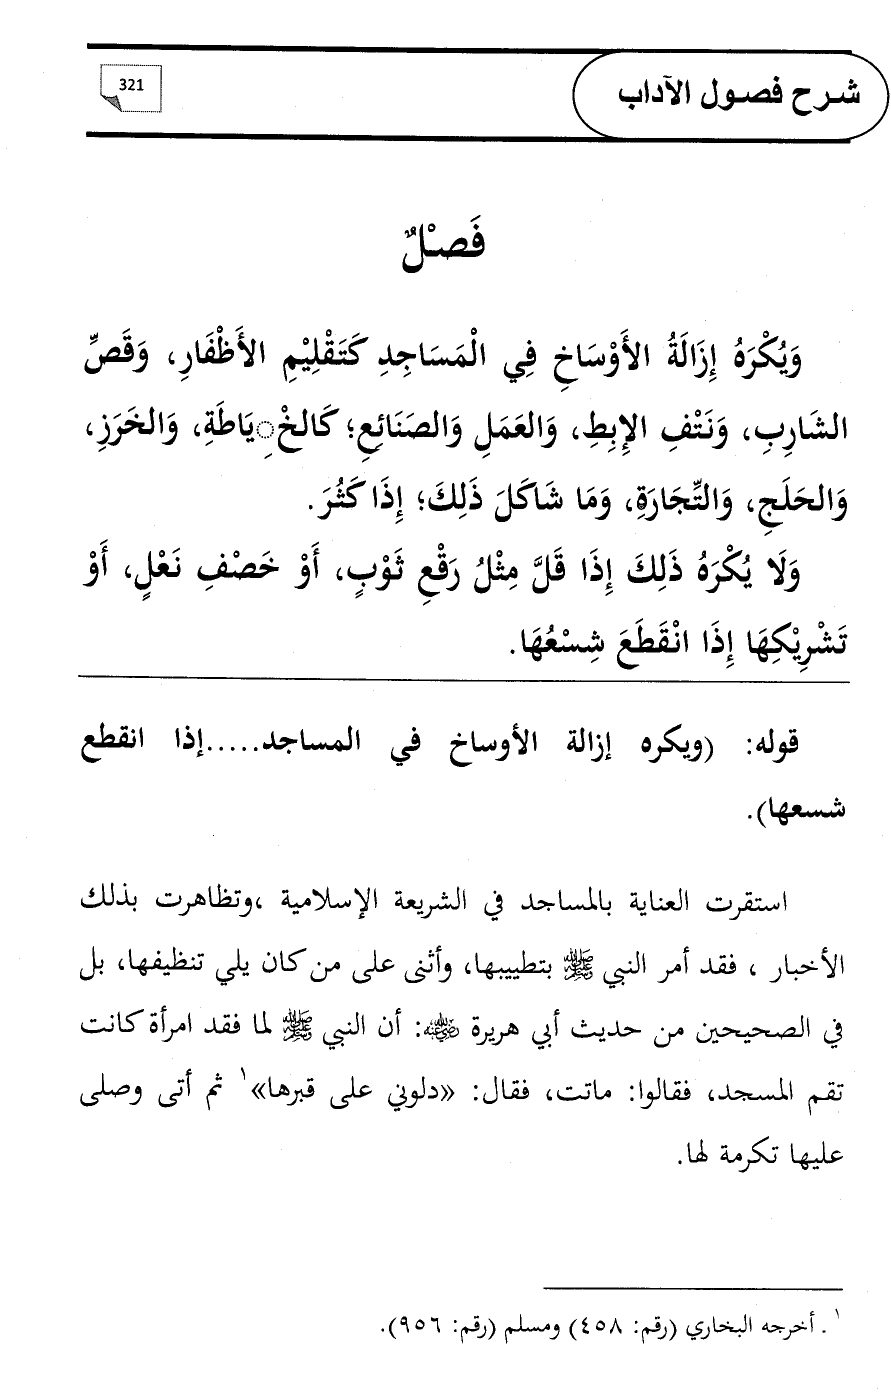 شرح فصول الآداب
321
فَصْلٌ
وَيُكْرَهُ إِزَالَةُ الأَوْسَاخِ فِي الْمَسَاجِدِ كَتَقْلِيْمِ الأَظْفَارِ، وَقَصِّ
الشَارِبِ، وَنَتْفِ الإِبِطِ، وَالعَمَلِ وَالصَنَائِعِ؛ كَالخْ◌ِيَاطَةِ، وَالخَرَزِ،
وَالحَلَجِ، وَالتِّجَارَةِ، وَمَا شَاكَلَ ذَلِكَ؛ إِذَا كَثُرَ.
وَلَا يُكْرَهُ ذَلِكَ إِذَا قَلَّ مِثْلُ رَقْعِ ثَوْبٍ، أَوْ خَصْفِ نَعْلٍ، أَوْ
تَشْرِيْكِهَا إِذَا انْقَطَعَ شِسْعُهَا.
قوله: (ويكره إزالة الأوساخ في المساجد.....إذا انقطع
شسعها).
استقرت العناية بالمساجد في الشريعة الإسلامية ،وتظاهرت بذلك
الأخبار ، فقد أمر النبي ﷺ بتطييبها، وأثنى على من كان يلي تنظيفها، بل
في الصحيحين من حديث أبي هريرة رضي الله عنه: أن النبي ﷺ لما فقد امرأة كانت
تقم المسجد، فقالوا: ماتت، فقال: «دلوني على قبرها»١ ثم أتى وصلى
عليها تكرمة لها.
١. أخرجه البخاري (رقم: ٤٥٨) ومسلم (رقم: ٩٥٦).